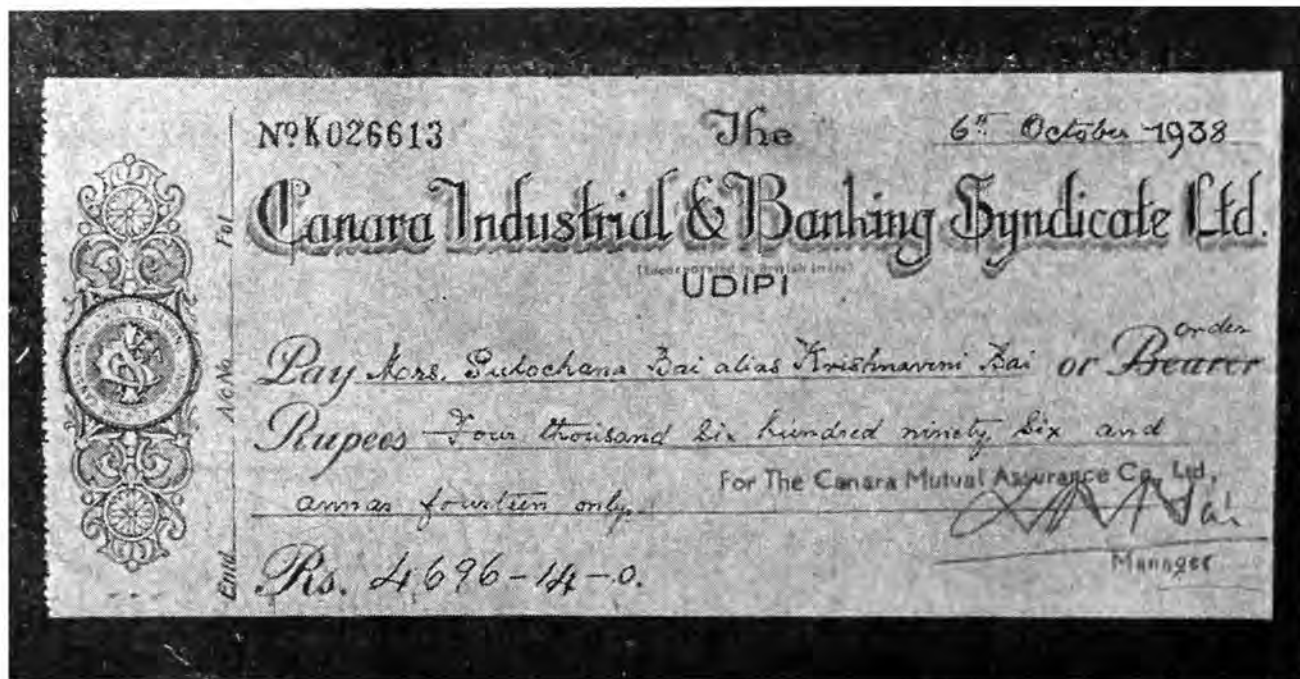 No K026613
The
6th October 1938
Canara Industrial & Banking Syndicate Ltd.
(Incorporated in British India)
UDIPI
Pay Mrs. Sulochana Bai alias Krishnaveni Bai or Bearer order
Rupees Four thousand Six hundred ninety Six and
annas fourteen only.
For The Canara Mutual Assurance Co., Ltd,
Manager
Rs. 4,696-14-0.
Fol